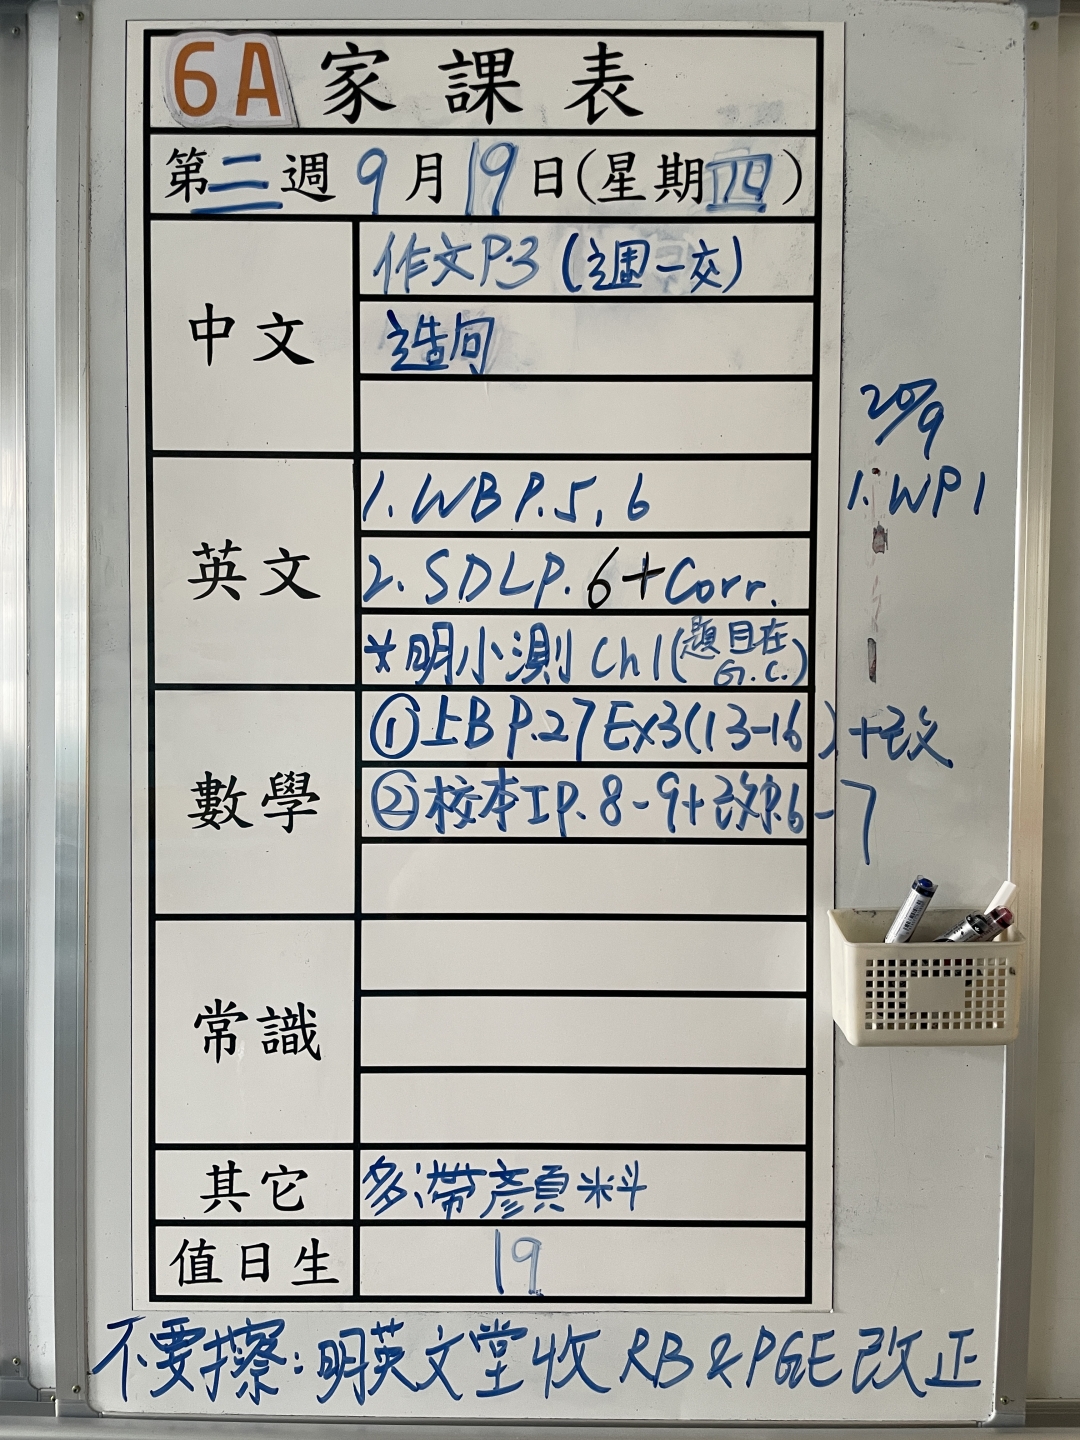 6A 家課表
第二週 9月19日(星期四)
中文
作文P.3 (週一交)
造句
英文
1. WB P.5, 6
2. SDL P. 6 + Corr.
*明小測 Ch 1 (題目在 G.C.)
數學
① 上B P.27 Ex3(13-16) + 改
② 校本工P. 8-9 + 改P.6-7
常識
其它
帶顏料
值日生
19
20/9
1. WP1
不要擦: 明英文堂收 RB & PGE 改正